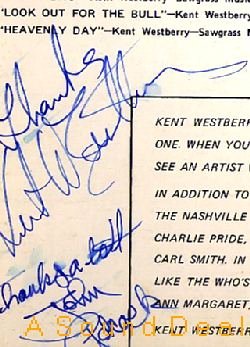 "LOOK OUT FOR THE BULL"—Kent Westberry—Sawgrass
"HEAVENLY DAY"—Kent Westberry—Sawgrass M
Thanks
Kent Westberry
KENT WESTBERRY
ONE. WHEN YOU
SEE AN ARTIST
IN ADDITION TO
THE NASHVILLE
CHARLIE PRIDE,
CARL SMITH. IN
LIKE THE WHO'S
ANN MARGARET,
KENT WESTBER
Thanks
A Sound Deal